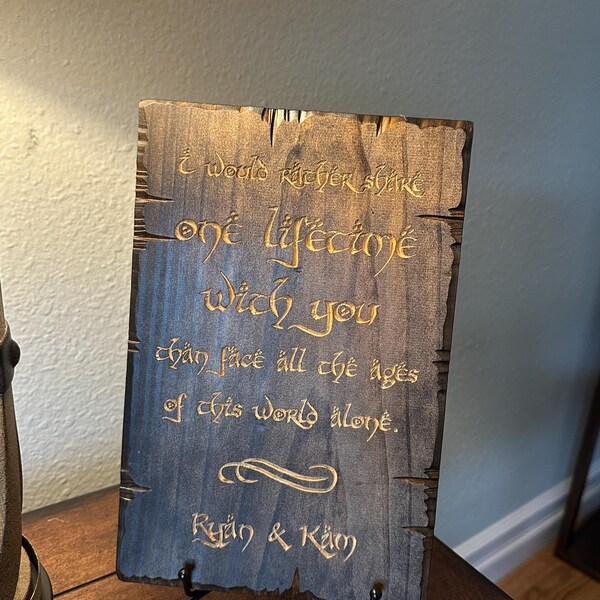 i would rather share
one lifetime
with you
than face all the ages
of this world alone.
Ryan & Kam